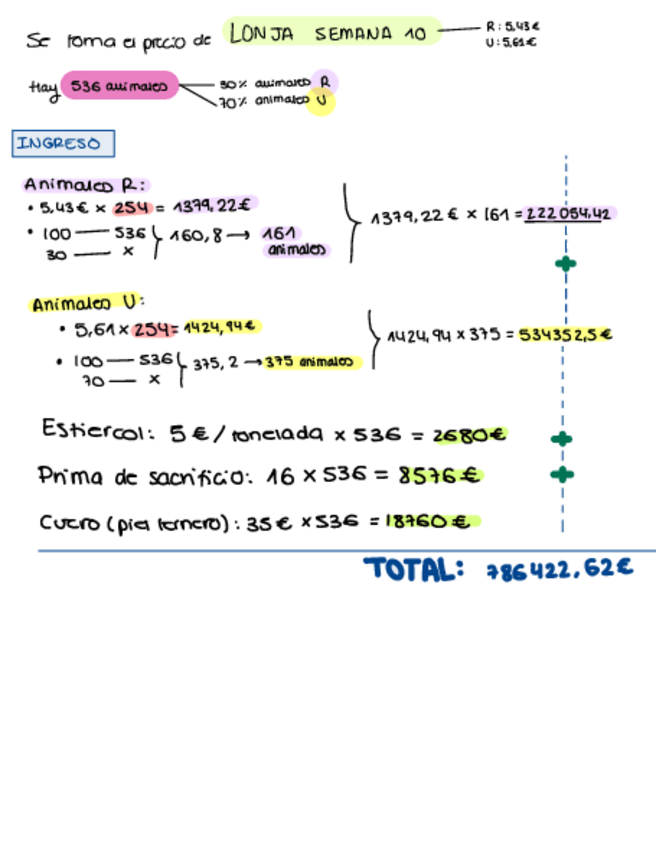 Se toma el precio de LONJA SEMANA 10
R: 5,43€
U: 5,61€
Hay 536 animales
30% animales R
70% animales U
INGRESO
Animales R:
• 5,43€ x 254 = 1379,22€
• 100 — 536
30 — x
160,8 → 161 animales
1379,22€ x 161 = 222054,42
Animales U:
• 5,61 x 254 = 1424,94€
• 100 — 536
70 — x
375,2 → 375 animales
1424,94 x 375 = 534352,5€
Estiercol: 5€/tonelada x 536 = 2680€
Prima de sacrificio: 16 x 536 = 8576€
Cuero (piel ternero): 35€ x 536 = 18760€
TOTAL: 786422,62€